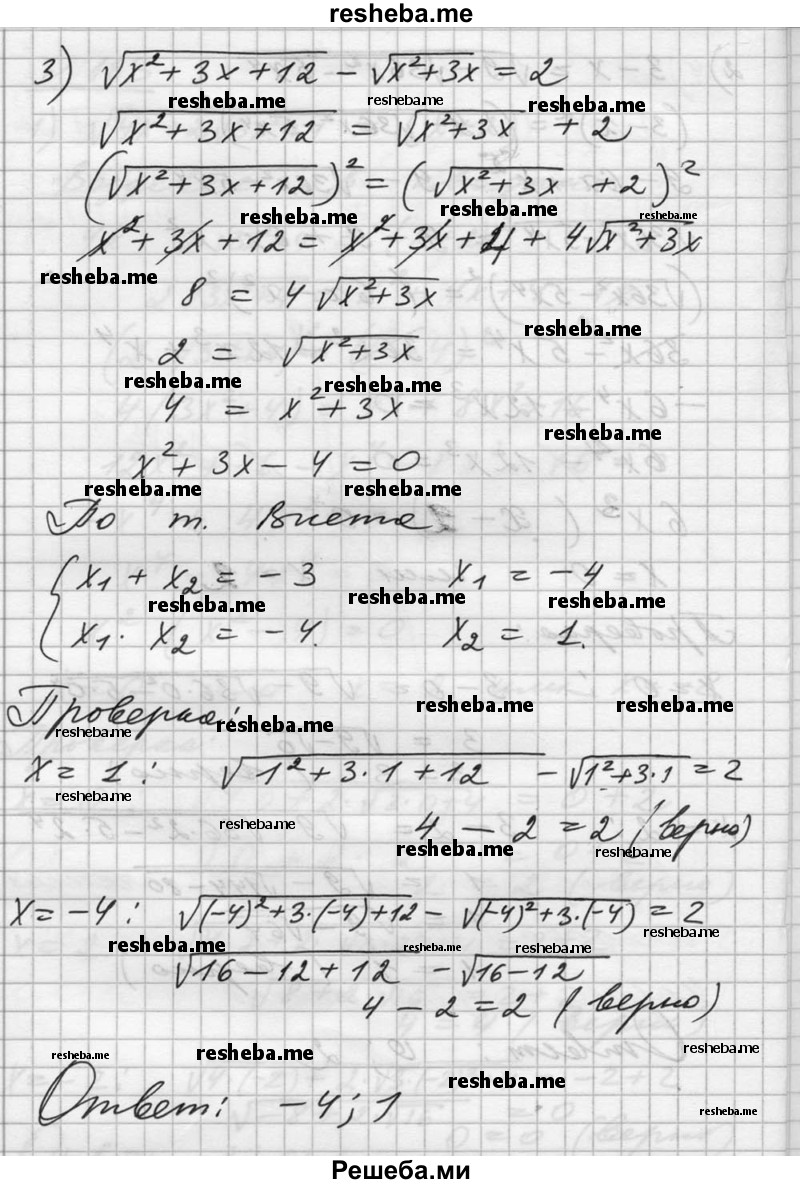 resheba.me
3) √(x²+3x+12) - √(x²+3x) = 2
resheba.me resheba.me resheba.me
√(x²+3x+12) = √(x²+3x) + 2
(√(x²+3x+12))² = (√(x²+3x) + 2)²
resheba.me resheba.me resheba.me
x²+3x+12 = x²+3x+4+4√(x²+3x)
resheba.me
8 = 4√(x²+3x)
resheba.me
2 = √(x²+3x)
resheba.me resheba.me
4 = x²+3x
resheba.me
x²+3x-4=0
resheba.me resheba.me
По т. Виета
x₁ + x₂ = -3 x₁ = -4
resheba.me resheba.me resheba.me
x₁ · x₂ = -4. x₂ = 1.
Проверка:
resheba.me resheba.me
resheba.me resheba.me
x = 1: √(1²+3·1+12) - √(1²+3·1) = 2
resheba.me resheba.me
4 - 2 = 2 (верно)
resheba.me resheba.me
x = -4: √((-4)²+3·(-4)+12) - √((-4)²+3·(-4)) = 2
resheba.me resheba.me resheba.me resheba.me
√(16-12+12) - √(16-12)
4 - 2 = 2 (верно)
resheba.me resheba.me resheba.me
resheba.me
Ответ: -4; 1
resheba.me
Решеба.ми